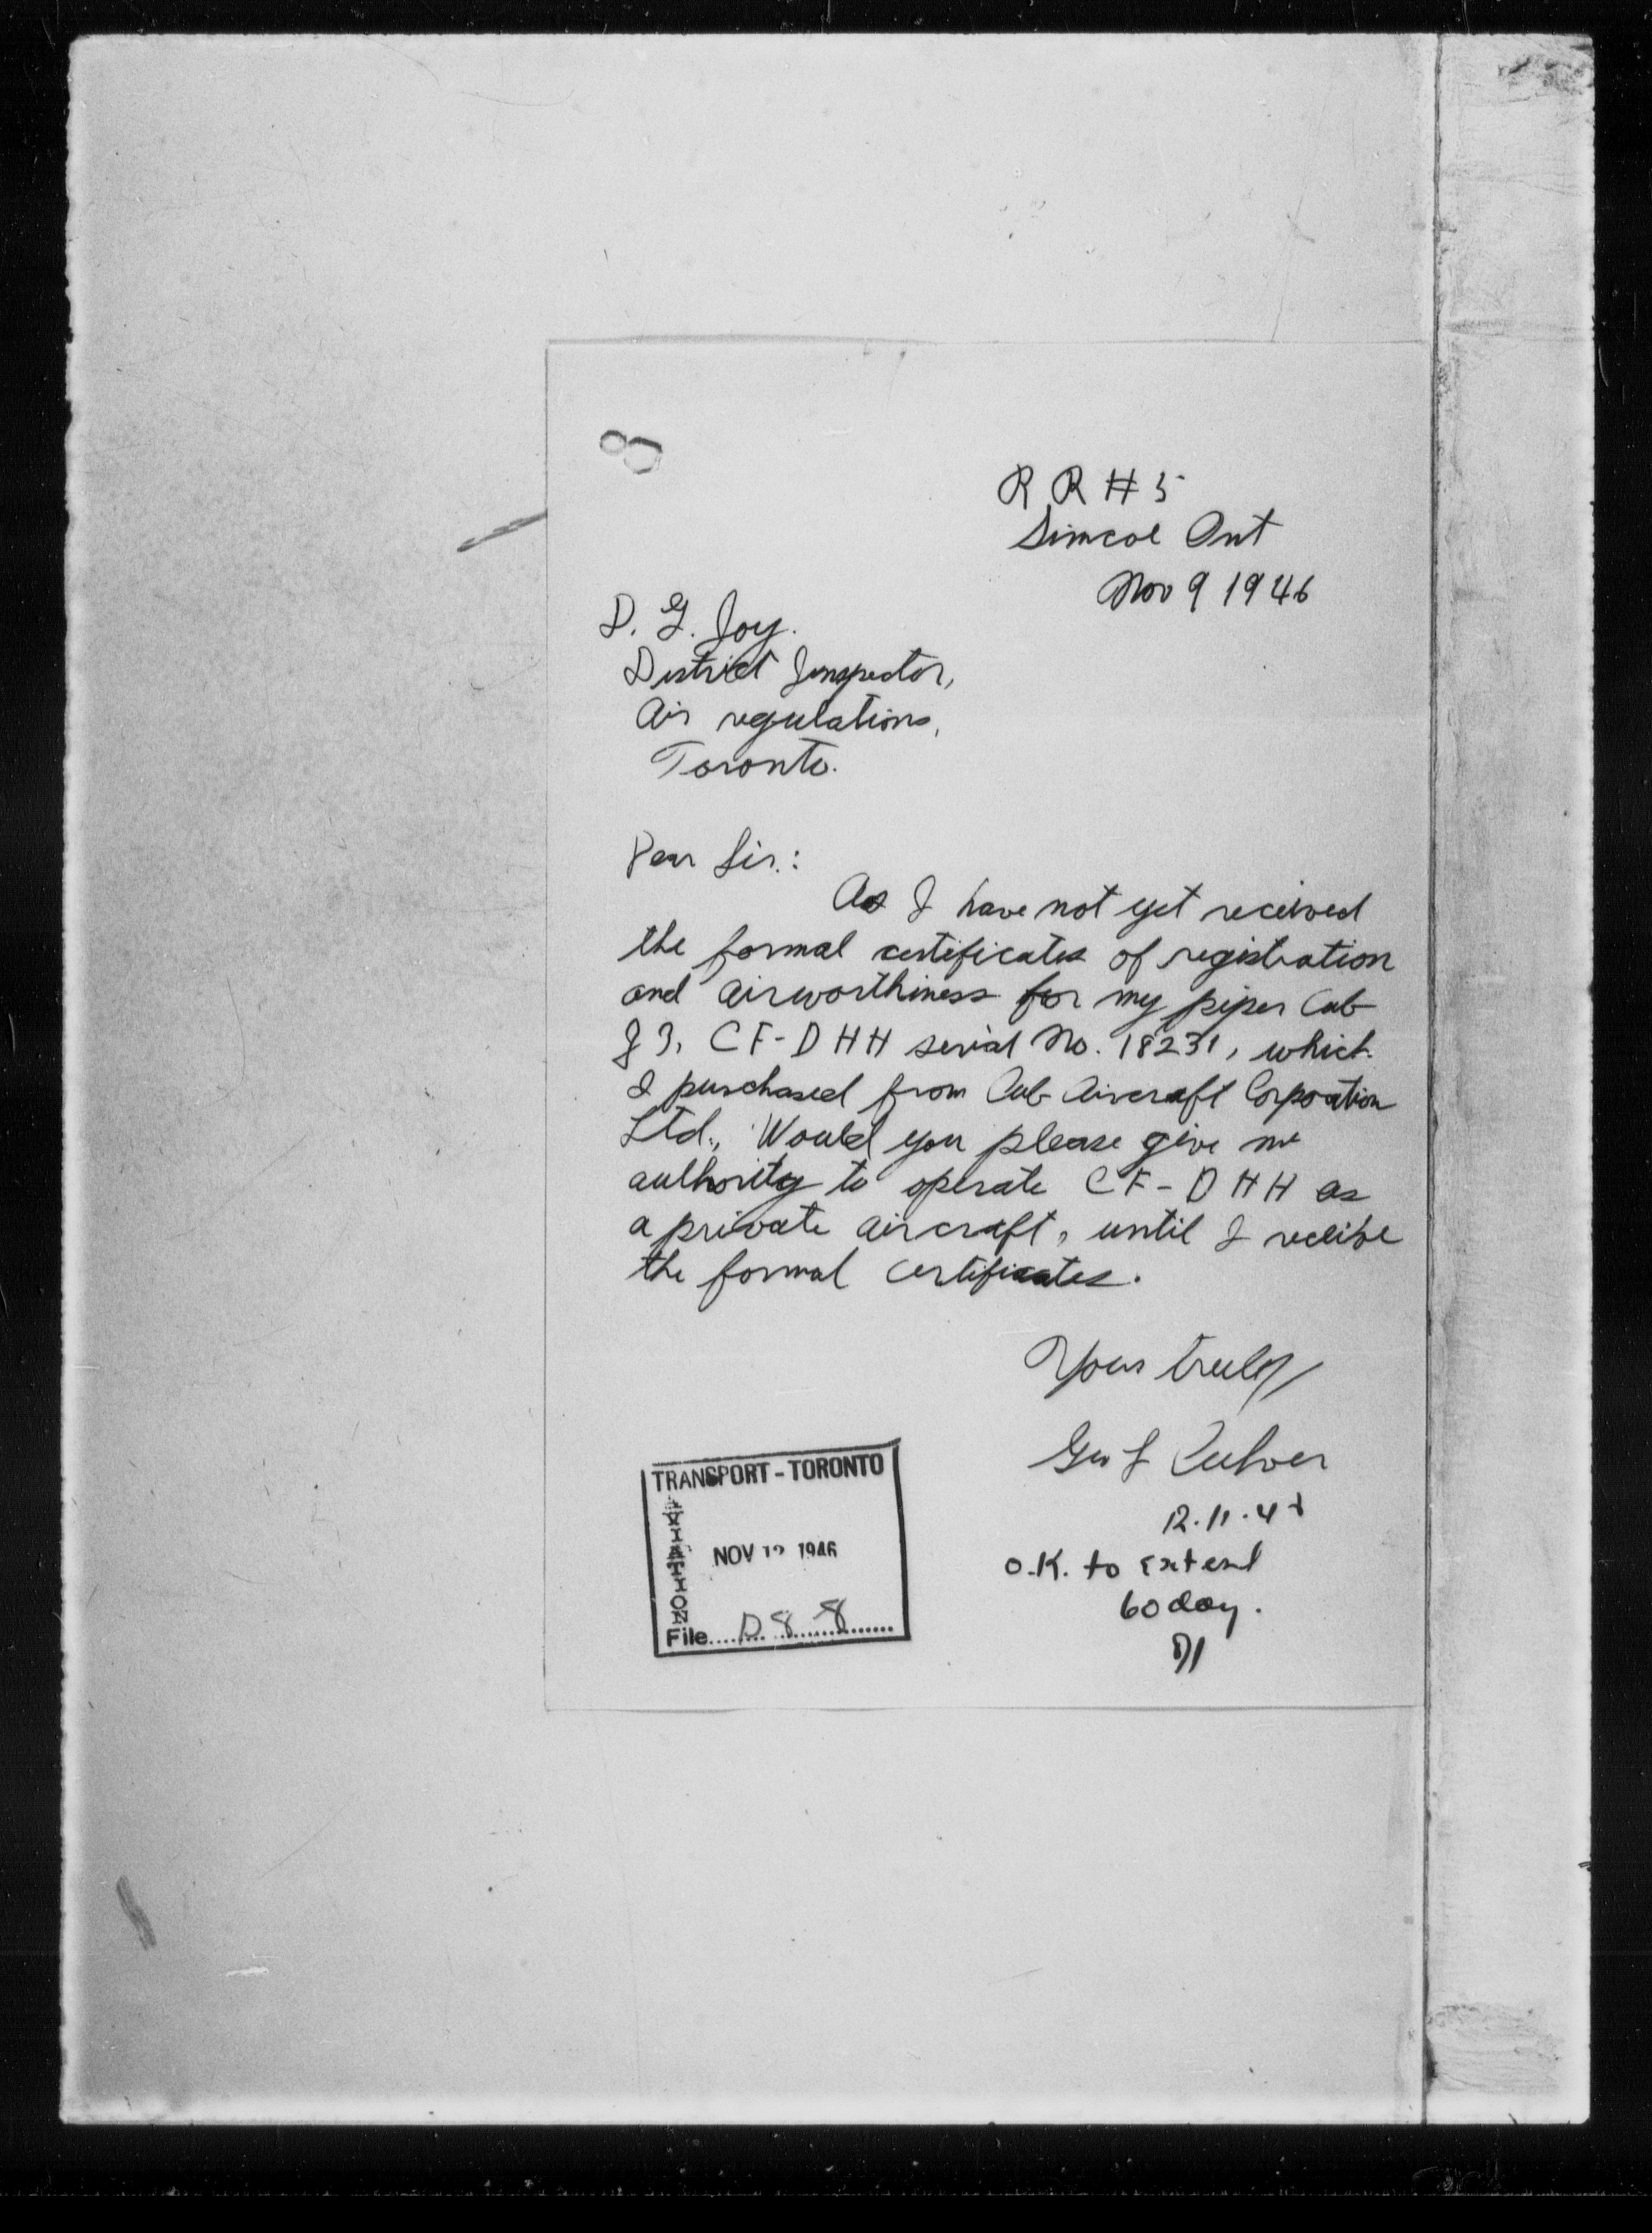 8
R R # 5
Simcoe Ont
Nov 9 1946
D. G. Joy.
District Inspector,
Air regulations,
Toronto.
Dear Sir.:
As I have not yet received
the formal certificates of registration
and airworthiness for my piper Cub
J 3, CF-DHH serial No. 18231, which
I purchased from Cub Aircraft Corporation
Ltd., Would you please give me
authority to operate CF-DHH as
a private aircraft, until I receive
the formal certificates.
Yours truly
Geo L Culver
12.11.46
O.K. to extend
60 day.
TRANSPORT - TORONTO
AVIATION
NOV 12 1946
File D 8 8